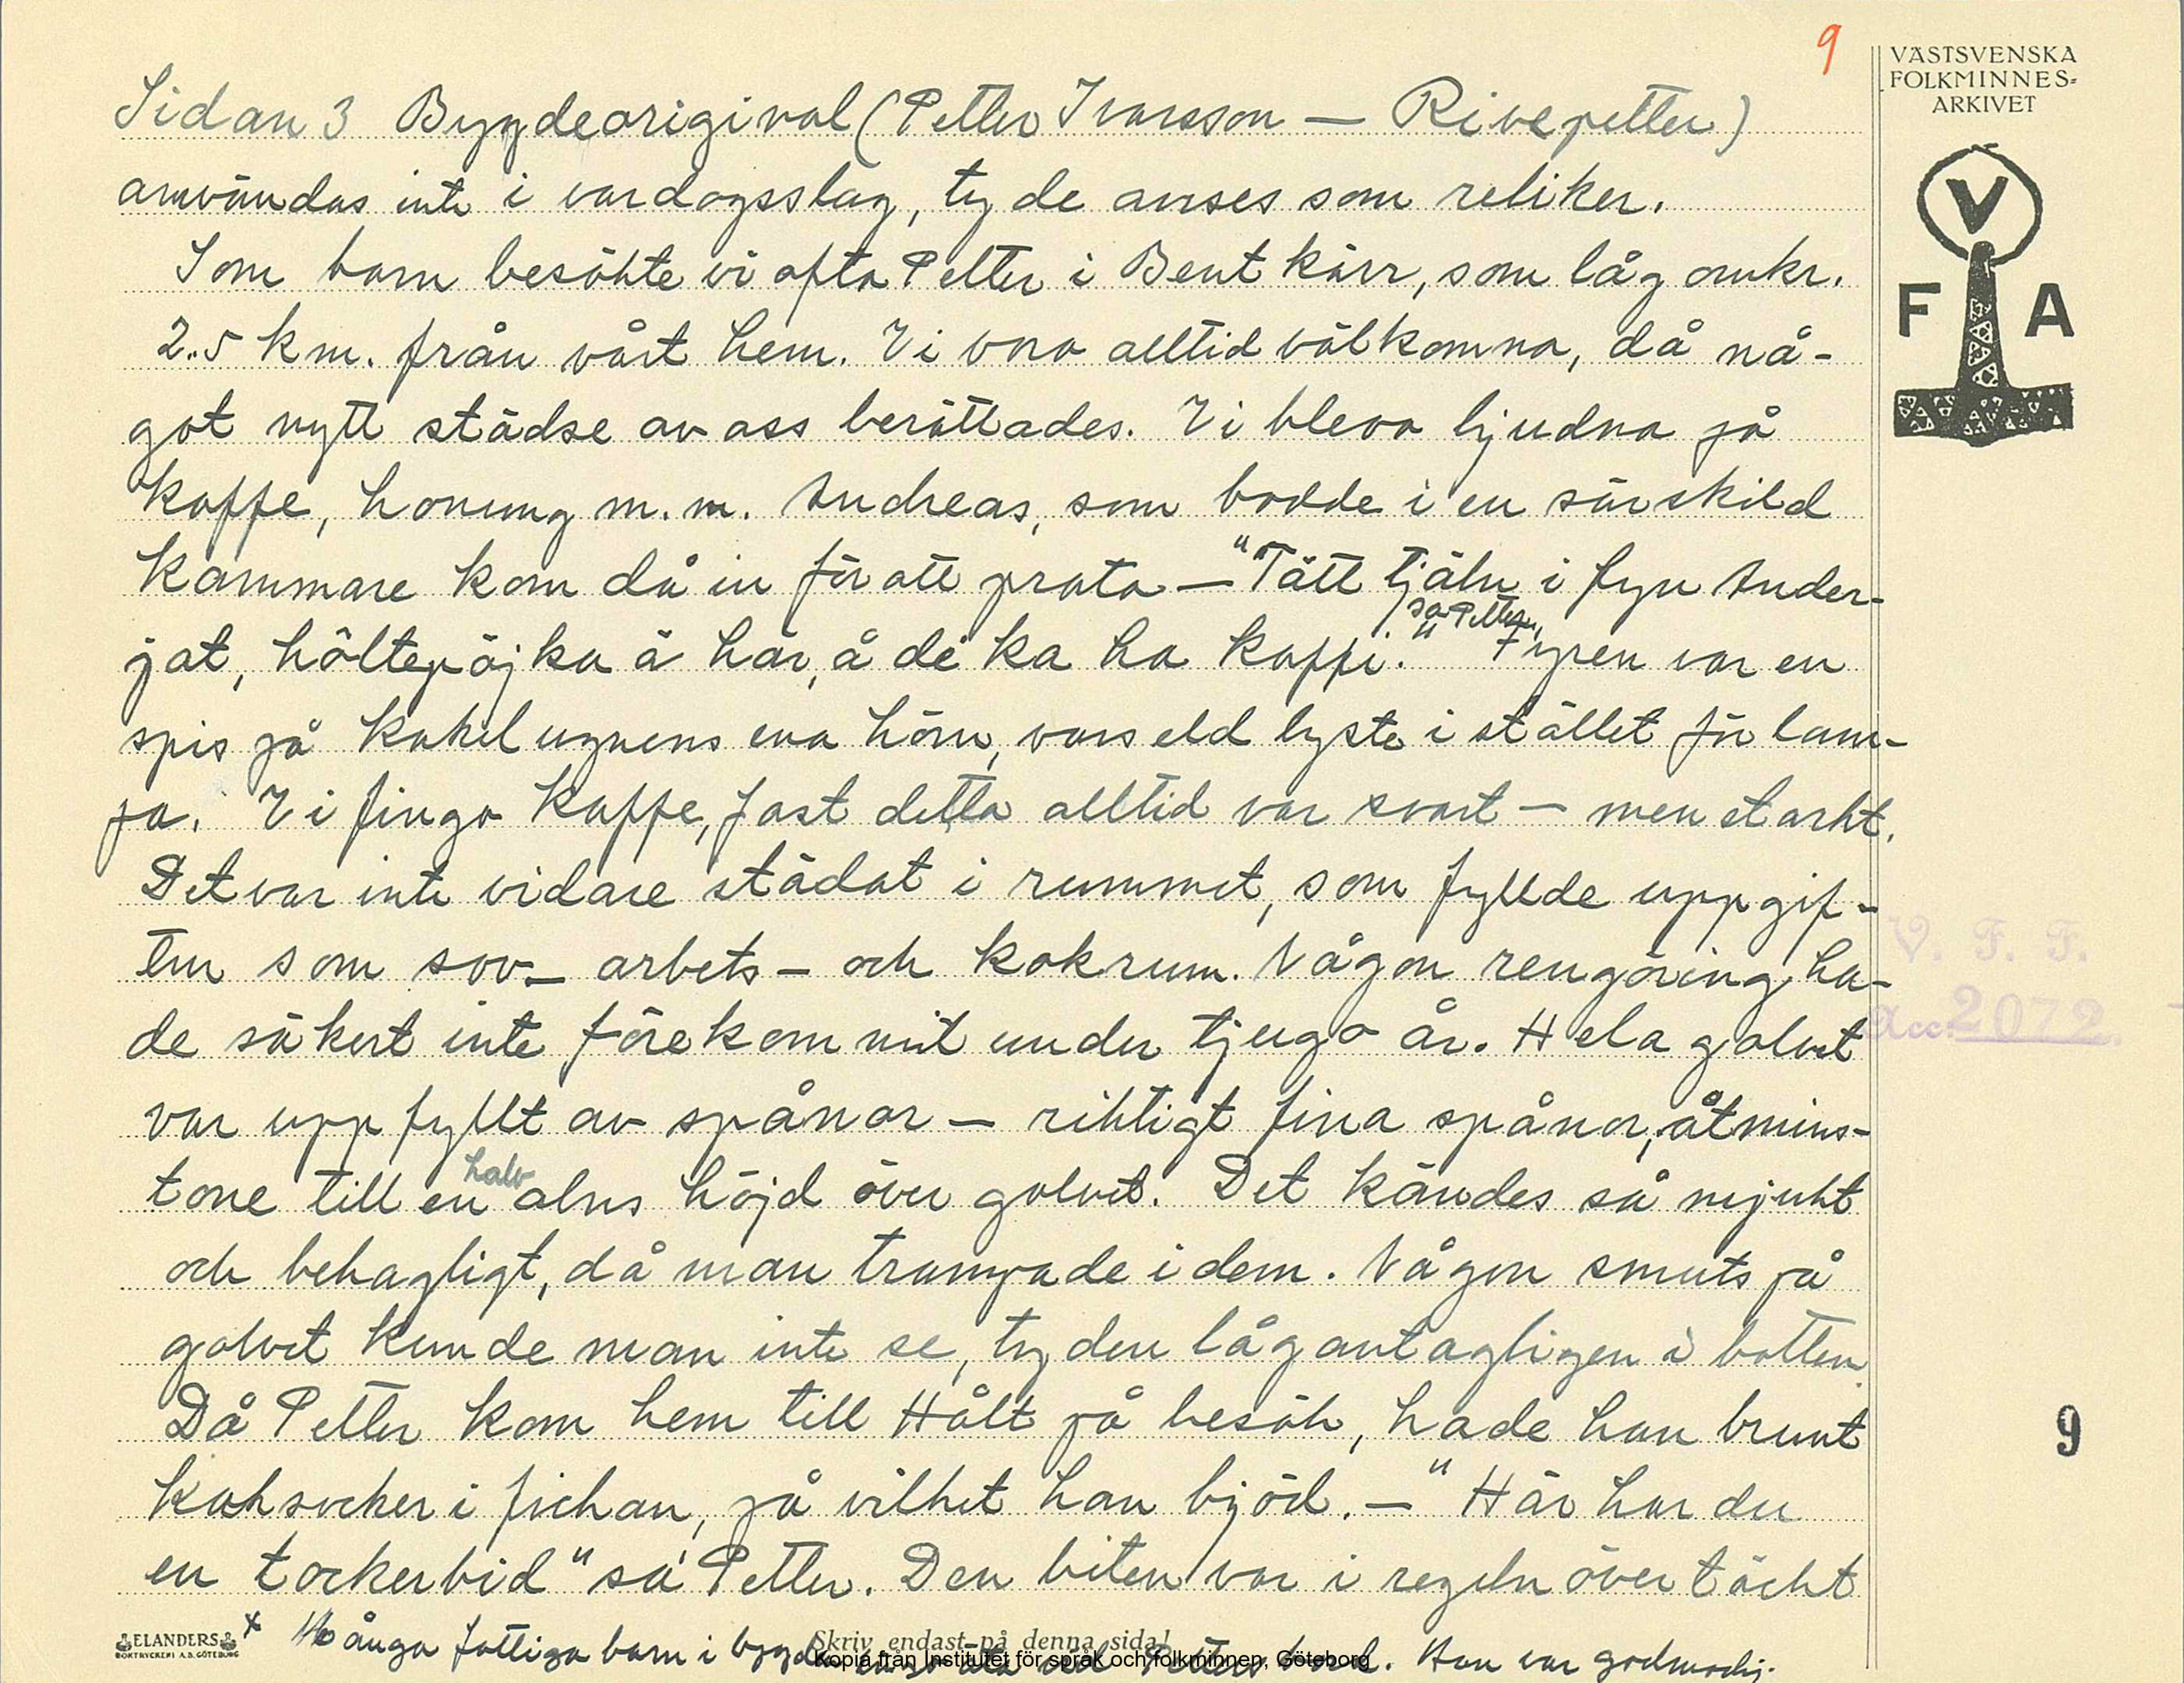 9
VÄSTSVENSKA
FOLKMINNES=
ARKIVET
V
F A
Sidan 3 Bygdeorigival (Petter Ivarsson — Rivepetter)
användas inte i vardagsslag, ty de anses som reliker.
Som barn besökte vi ofta Petter i Bentkärr, som låg omkr.
2.5 km. från vårt hem. Vi voro alltid välkomna, då nå-
got nytt städse av oss berättades. Vi blevo bjudna på
kaffe, honung m.m. Andreas, som bodde i en särskild
kammare kom då in för att prata — "Tätt tjäln i fyn Ander-
sa Petter,
jat, höltepöjka ä här, å de ka ha kaffi." Fyren var en
spis på kakelugnens ena hörn, vars eld lyste i stället för lam-
pa. Vi fingo kaffe, fast detta alltid var svart — men starkt.
Det var inte vidare städat i rummet, som fyllde uppgif-
ten som sov- arbets- och kokrum. Någon rengöring ha-
de säkert inte förekommit under tjugo år. Hela golvet
var uppfyllt av spånor — riktigt fina spånor, åtmins-
halv
tone till en alns höjd över golvet. Det kändes så mjukt
och behagligt, då man trampade i dem. Någon smuts på
golvet kunde man inte se, ty den låg antagligen i botten.
Då Petter kom hem till Hålt på besök, hade han brunt
kaksocker i fickan, på vilket han bjöd. — "Här har du
en tockerbid" sa Petter. Den biten var i regeln övertäckt
V. F. F.
Acc. 2072
9
ELANDERS
BOKTRYCKERI A.B. GÖTEBORG
Skriv endast på denna sida!
x Många fattiga barn i bygden äta vid Petters bord. Han var godmodig.
Kopia från Institutet för språk och folkminnen, Göteborg